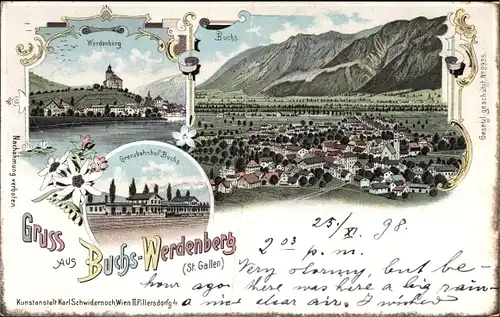 Werdenberg
Buchs
Grenzbahnhof Buchs
Gruss
aus
Buchs-Werdenberg
(St. Gallen)
Nachahmung verboten.
Gesetzl. geschützt. No 2925.
Kunstanstalt Karl Schwidernoch, Wien II. Fillersdorfg 4.
25./XI. 98.
2 03 p. m.
Very stormy, but be-
hour ago there was here a big rain-
a nice clear air. I